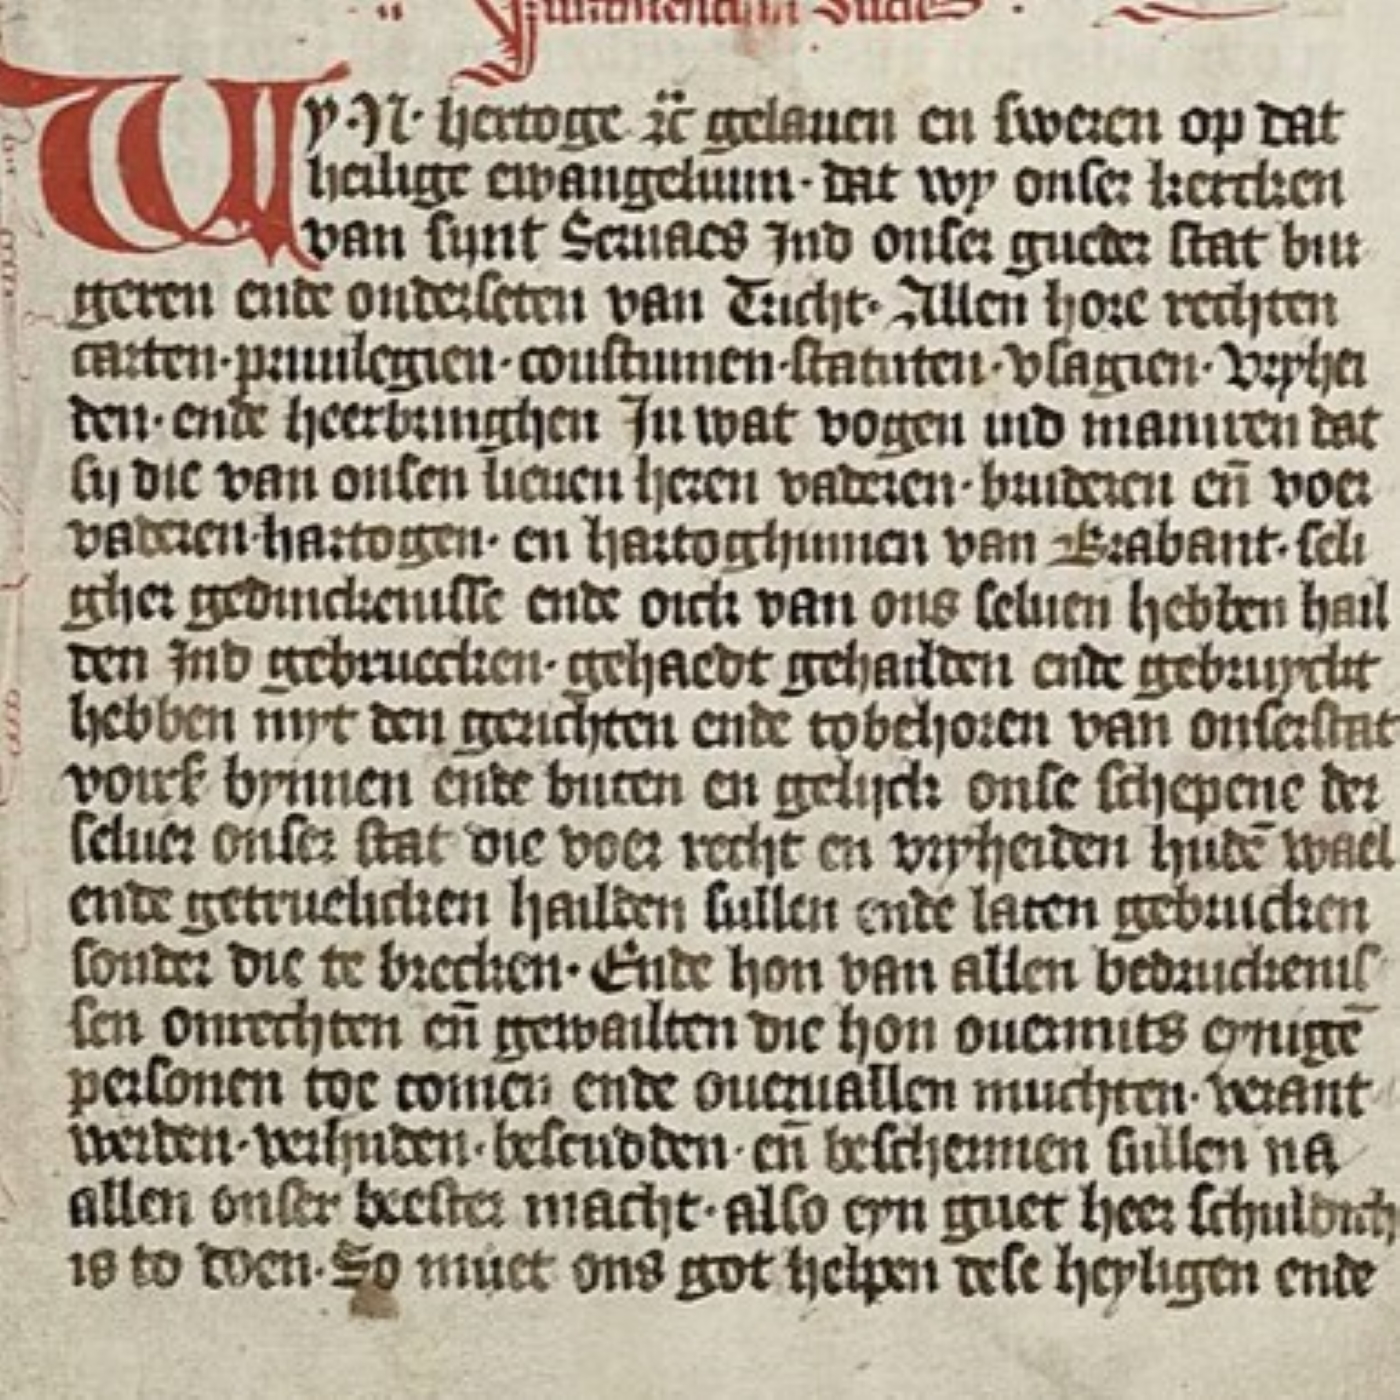 Juramentum ducis
Wy · N · hertoge ⁊c̈ gelauen en sweren op dat
heilige ewangelium · dat wy onser kercken
van sijnt Seruaes Ind onser gueder stat bur
geren ende onderseten van Tricht · Allen hore rechten
carten · priuilegien · coustumen · statuten · vsagien · vryhei
den · ende heerbringhen In wat vogen ind maniren dat
sij die van onsen lieuen heren vaderen · bruideren en̄ voer
vaderen · hartogen · en hartoghinnen van Brabant · seli
gher gedinckenisse ende oick van ons seluen hebben hail
den Ind gebruecken · gehaedt gehailden ende gebruyckt
hebben myt den gerichten ende tobehoren van onser stat
voirß bynnen ende buten en gelijck onse schepene der
seluer onser stat die voer recht en vryheiden hudē wael
ende getruelicken hailden sullen ende laten gebrucken
sonder die te brecken · Ende hon van allen bedruckenis
sen onrechten en̄ gewailten die hon ouermits eynigē
personen toe comen ende oueruallen muchten · verant
werden · verhuden · bescudden · en̄ beschermen sullen na
allen onser beester macht · also eyn guet heer schuldich
is to doen · So muet ons got helpen dese heyligen ende